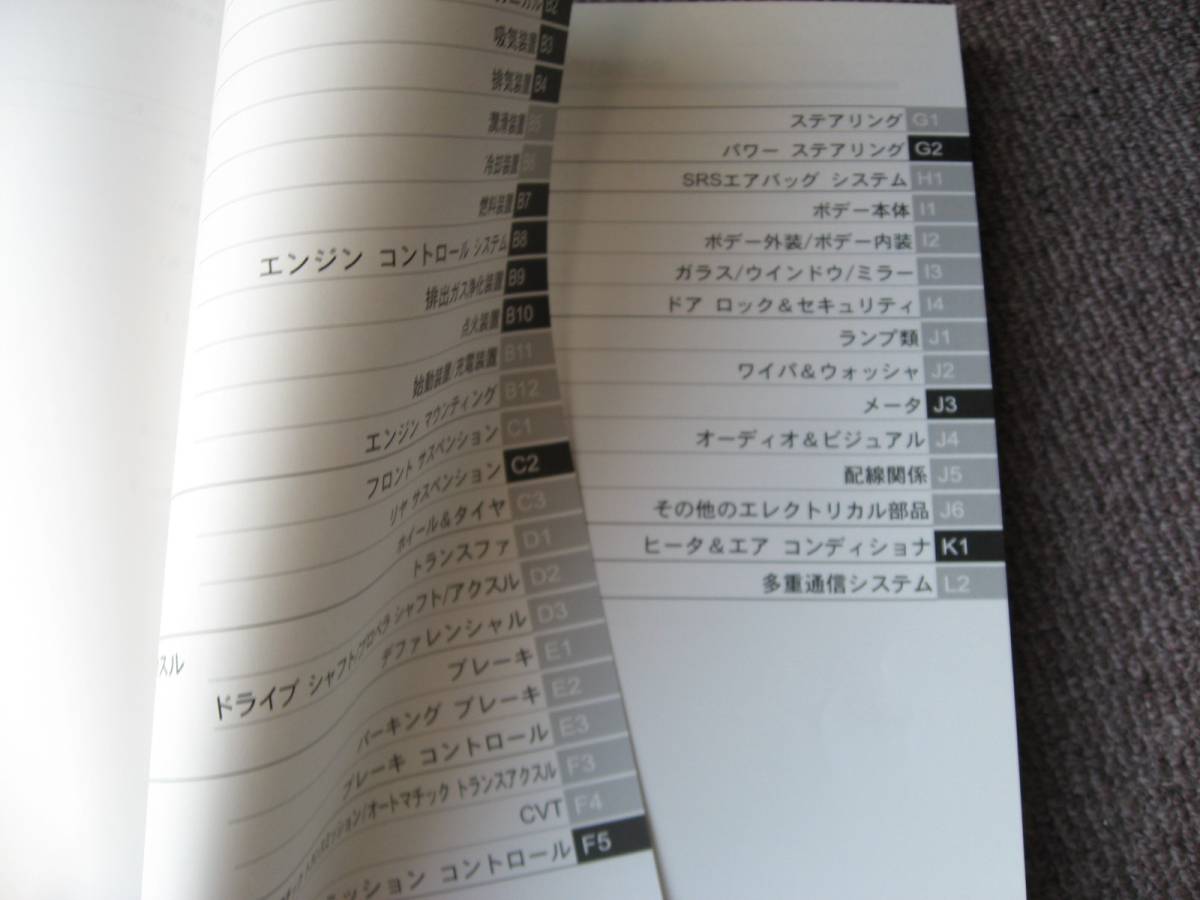 B2
吸気装置 B3
排気装置 B4
潤滑装置 B5
冷却装置 B6
燃料装置 B7
エンジン コントロール システム B8
排出ガス浄化装置 B9
点火装置 B10
始動装置/充電装置 B11
エンジン マウンティング B12
フロント サスペンション C1
リヤ サスペンション C2
ホイール&タイヤ C3
トランスファ D1
ドライブ シャフト/プロペラ シャフト/アクスル D2
デファレンシャル D3
ブレーキ E1
パーキング ブレーキ E2
ブレーキ コントロール E3
オートマチック トランスアクスル F3
CVT F4
コントロール F5
スル
ステアリング G1
パワー ステアリング G2
SRSエアバッグ システム H1
ボデー本体 I1
ボデー外装/ボデー内装 I2
ガラス/ウインドウ/ミラー I3
ドア ロック&セキュリティ I4
ランプ類 J1
ワイパ&ウォッシャ J2
メータ J3
オーディオ&ビジュアル J4
配線関係 J5
その他のエレクトリカル部品 J6
ヒータ&エア コンディショナ K1
多重通信システム L2